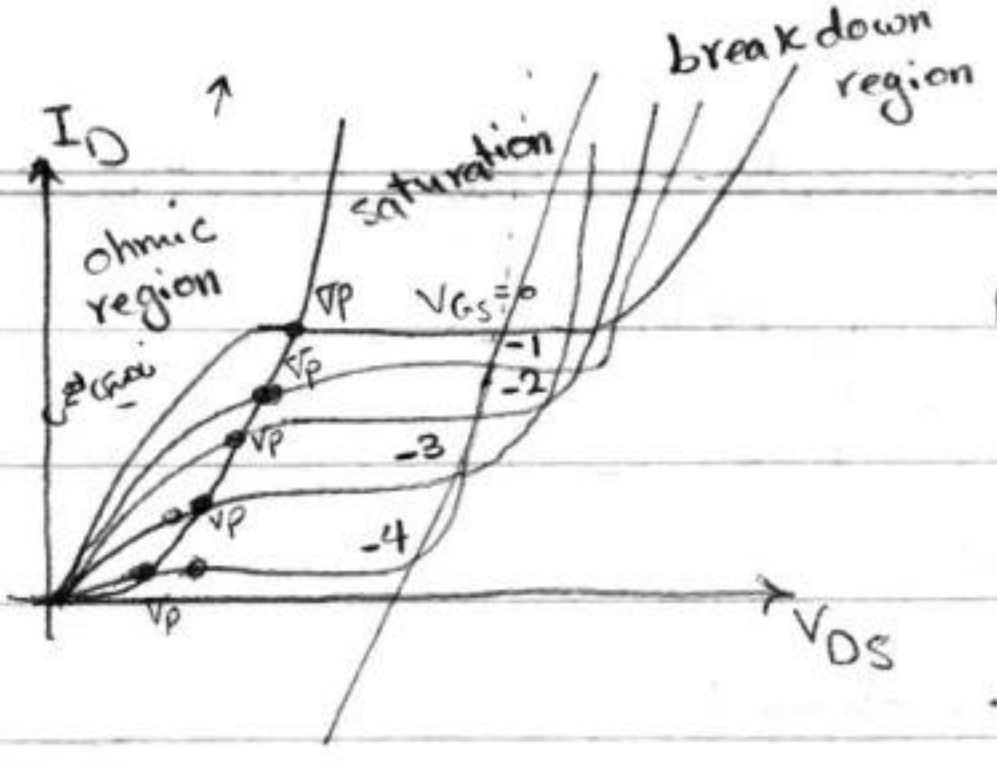 breakdown
region
I_D
saturation
ohmic
region
Vp
V_GS = 0
Vp
-1
-2
Vp
-3
Vp
-4
Vp
V_DS